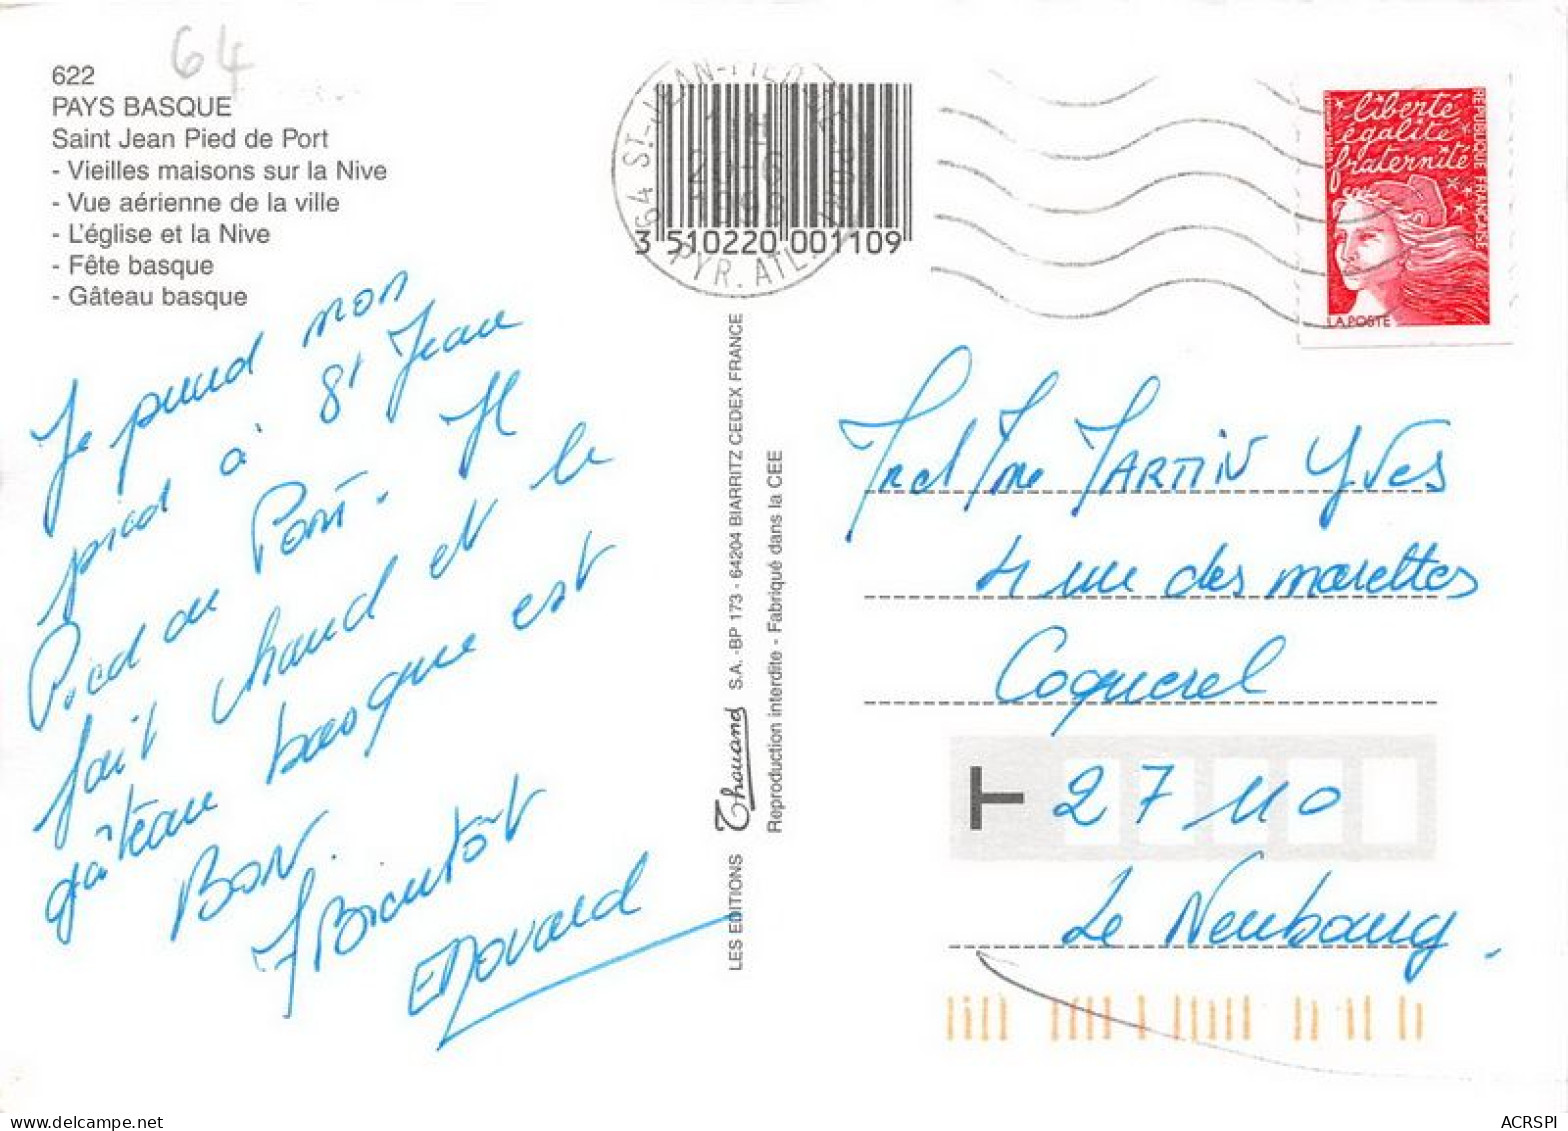 64
622
PAYS BASQUE
Saint Jean Pied de Port
- Vieilles maisons sur la Nive
- Vue aérienne de la ville
- L'église et la Nive
- Fête basque
- Gâteau basque
Je prend mon
pied à St Jean
Pied de Port. Il
fait chaud et le
gâteau basque est
Bon.
A Bientôt
Edouard
64 ST-JEAN-PIED-DE-PORT
PYR. ATL.
3 510220 001109
liberté
égalité
fraternité
REPUBLIQUE FRANÇAISE
LA POSTE
LES EDITIONS Thouand S.A. - BP 173 - 64204 BIARRITZ CEDEX FRANCE
Reproduction interdite - Fabriqué dans la CEE
Mr et Mme MARTIN Yves
4 rue des marettes
Coquerel
27110
Le Neubourg.
ACRSPI